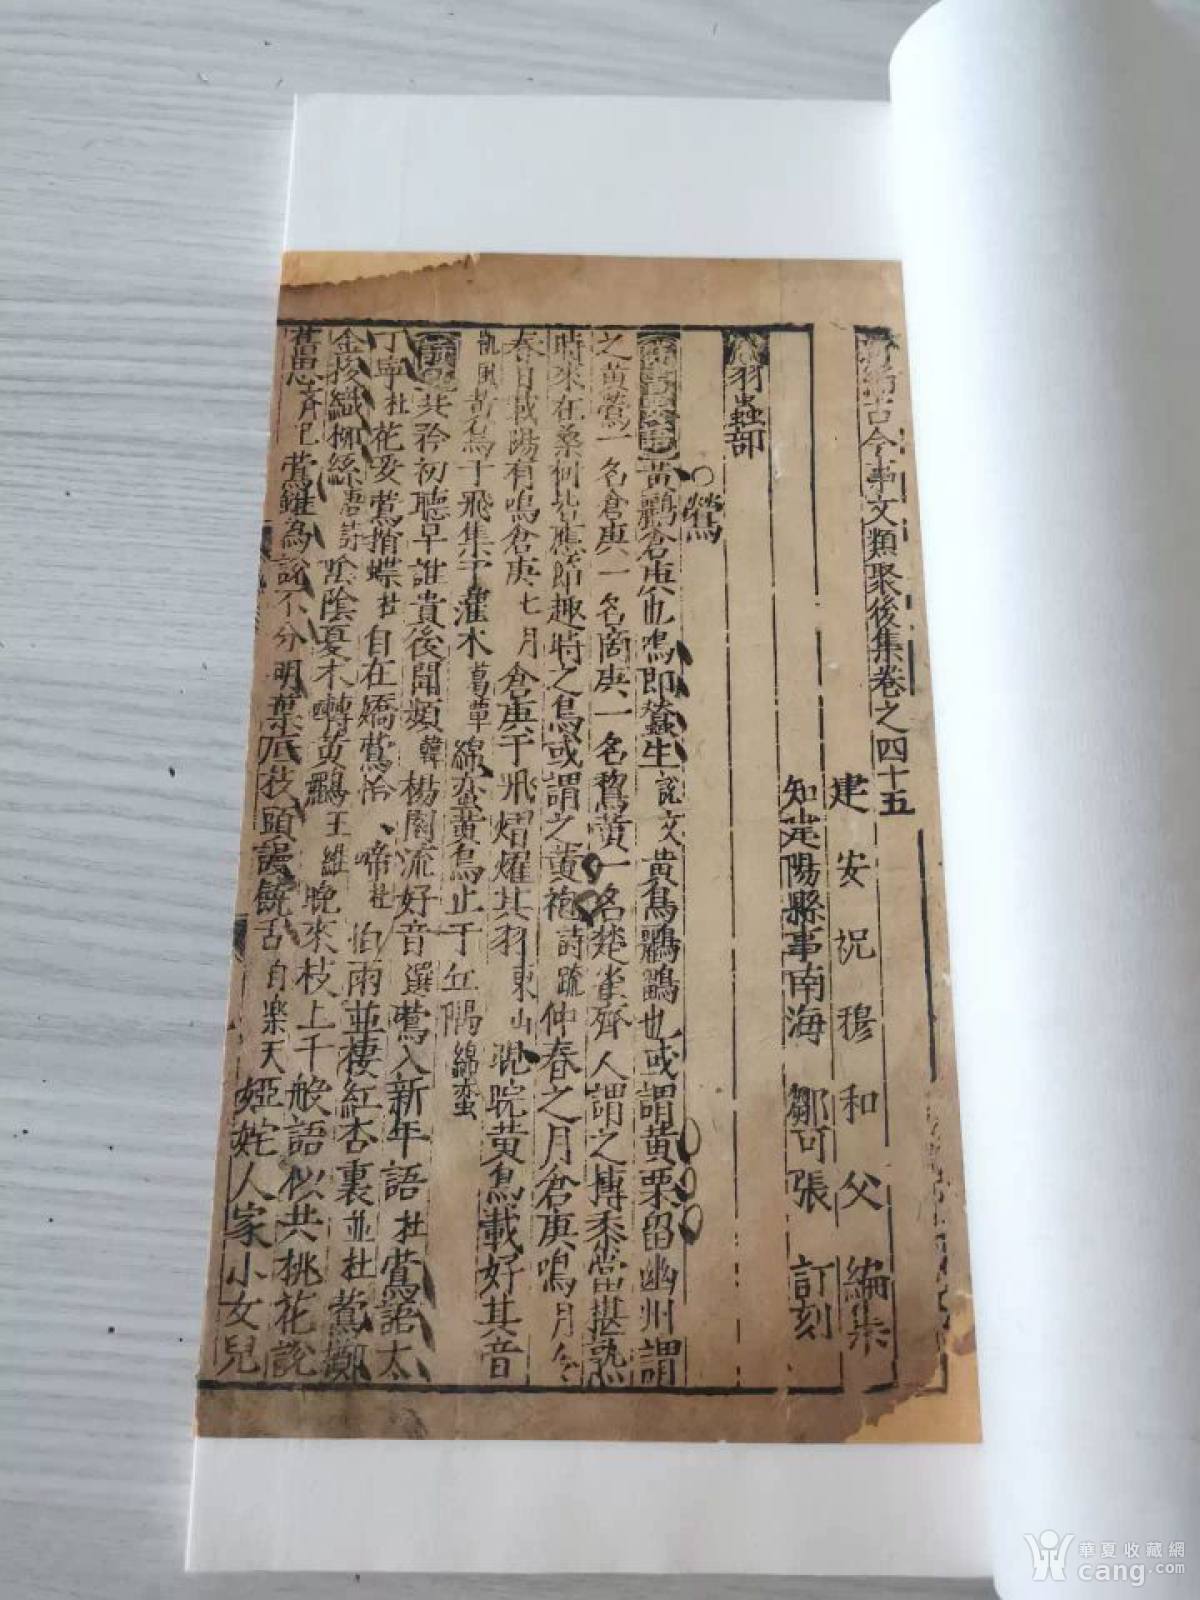 新編古今事文類聚後集卷之四十五
建安祝穆和父編集
知建陽縣事南海鄒可張訂刻
羽蟲部
○鶯
黄鸝倉庚也鳴即蠶生説文黄鳥鸝鶹也或謂黄栗留幽州謂
之黄鶯一名倉庚一名商庚一名鵹黄一名楚雀齊人謂之摶黍當葚熟
時來在桑間皆應節趣時之鳥或謂之黄袍詩疏仲春之月倉庚鳴月令
春日載陽有鳴倉庚七月倉庚于飛熠燿其羽東山睍睆黄鳥載好其音
凱風黄鳥于飛集于灌木葛覃綿蠻黄鳥止于丘隅綿蠻
共矜初聽早誰貴後聞頻韓楊園流好音選鶯入新年語杜鶯語太
丁寧杜花妥鶯捎蝶杜自在嬌鶯恰恰啼杜怕雨並棲紅杏裏並杜鶯擲
金梭織柳絲唐詩陰陰夏木囀黄鸝王維晚來枝上千般語似共桃花説
舊心情鶯雛為説不分明葉底枝頭謾饒舌白樂天婭姹人家小女兒
華夏收藏網
cang.com